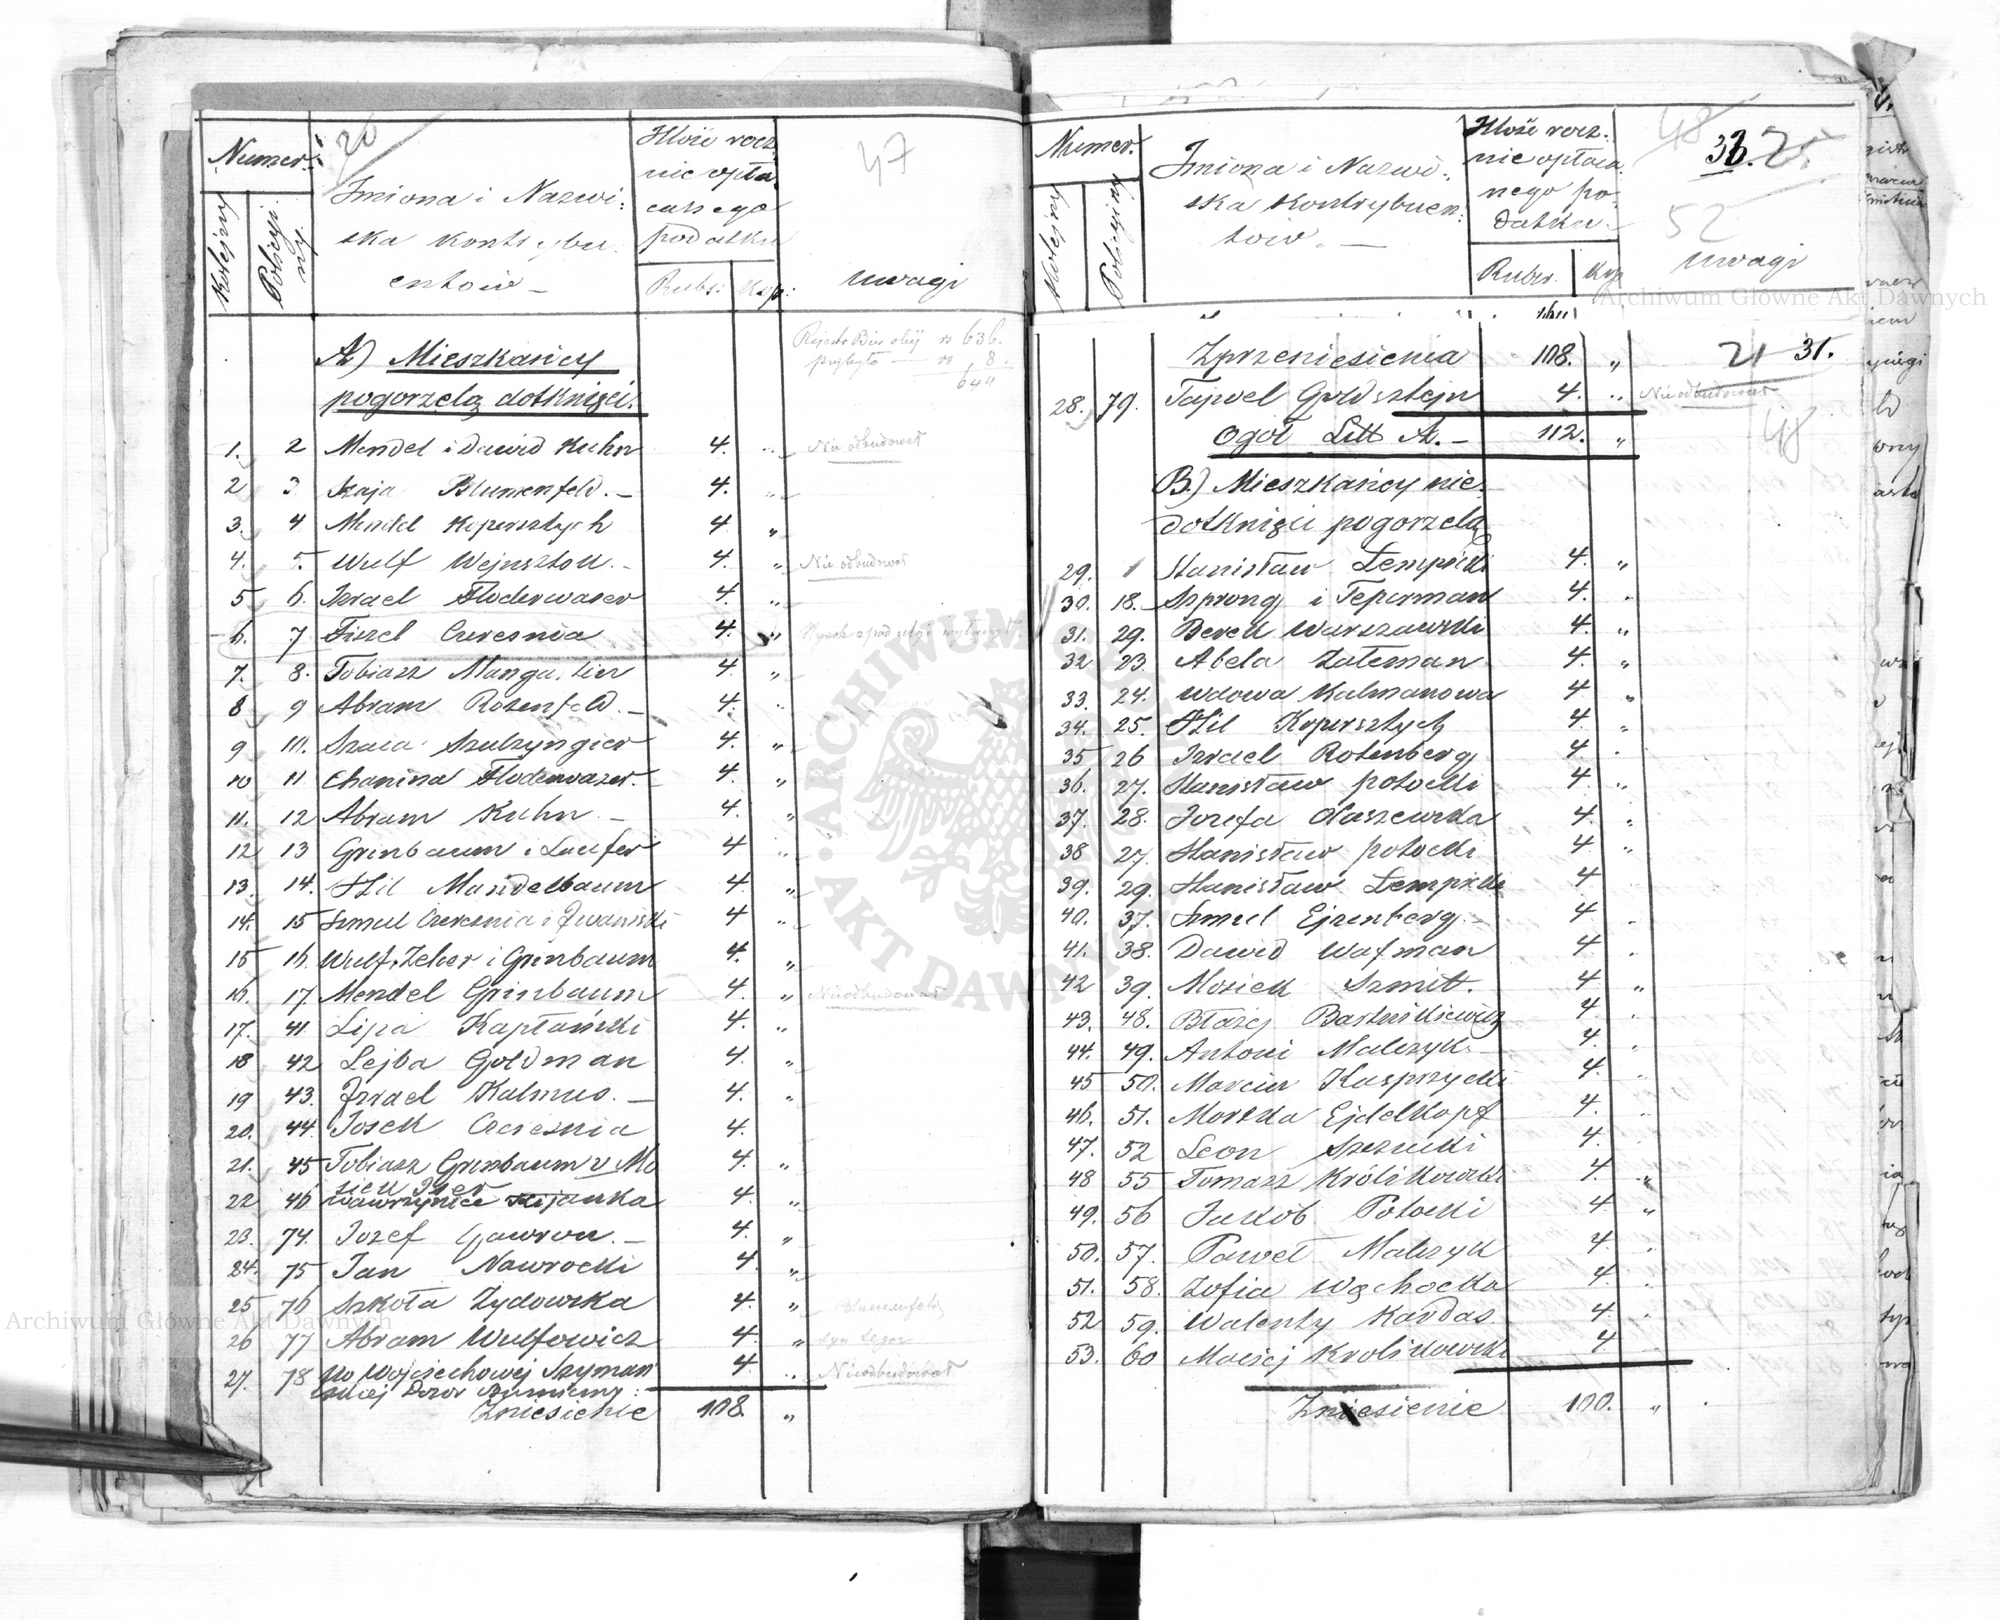 20
47
Numer.
Kolejny
Policyj:
ny.
Imiona i Nazwi:
ska kontrybu
entów —
Ilość rocz
nie opła
canego
podatku
Rubs: Kop:
uwagi
A) Mieszkańcy
pogorzelą dotknięci.
636.
8.
644
1. 2 Mendel i Dawid Kuhn 4. „ Nie odbudował
2 3 Szaja Blumenfeld. — 4. „
3. 4 Mendel Kopersztych 4 „
4. 5. Wulf Wejnsztok. — 4. „ Nie odbudował
5 6. Izrael Floderwaser 4. „
6. 7 Fiszel Czeresnia 4. „
7. 8. Tobiasz 4. „
8 9 Abram Rozenfeld. — 4. „
9 10. Szaia Szulzyngier 4. „
10 11 Chanina Floderwazer. — 4. „
11. 12 Abram Kuhn — 4. „
12 13 Grinbaum i Laufer 4 „
13. 14. Hil Mandelbaum 4. „
14. 15 Szmul Czeresnia i 4 „
15 16. Wulf Zeher i Grinbaum 4. „
16. 17 Mendel Grinbaum 4. „ Nieodbudował
17. 41 Lipa Kapłański 4. „
18 42 Lejba Goldman 4. „
19 43. Izrael Kalmus. — 4. „
20. 44. Josek Czeresnia 4.
21. 45 Tobiasz Grinbaum v Mo 4. „
siek Izer
22 46 Wawrzyniec Kijanka 4. „
23. 74. Jozef Gawron. — 4. „
24. 75 Jan Nawrocki 4. „
25 76 Szkoła Zydowska 4. „
26 77 Abram Wulfowicz 4. „
27. 78 po Wojciechowej Szyman 4. „ Nieodbudował
skiej Dozór
Zniesienie 108. „
48
52
Numer.
Kolejny
Policyjny
Imiona i Nazwi:
ska kontrybuen:
tów. —
Ilość rocz:
nie opłaca
nego po-
datku —
Rubs. Kop
uwagi
Zprzeniesienia 108. „ 21 31.
28. 79. Tajwel Goldsztejn 4. „ Nieodbudował
Ogół Litt A. — 112. „ 48
B.) Mieszkańcy nie
dotknięci pogorzelą
29. 1 Stanisław Łempicki 4. „
30. 18. Szprong i Teperman 4. „
31. 29. Berek Warszawski 4. „
32 23. Abela Zateman 4. „
33. 24. wdowa Kalmanowa 4 „
34. 25. Hil Kopersztych 4 „
35 26 Izrael Rotenberg 4 „
36. 27. Stanisław potocki 4 „
37. 28. Jozefa 4. „
38 27. Stanisław potocki 4 „
39. 29. Stanisław Łempicki 4
40. 37. Szmul Ejzenberg — 4 „
41. 38. Dawid Wafman 4 „
42 39. Mosiek Szmitt. 4 „
43. 48. Błażej Bartnikiewicz 4 „
44. 49. Antoni Malczyk — 4. „
45 50. Marcin Kasprzycki 4. „
46. 51. Moszka Ejdelkopf 4. „
47. 52 Leon Szczucki 4. „
48 55 Tomasz Królikowski 4. „
49. 56 Jakób Potocki 4 „
50. 57. Paweł Malczyk 4 „
51. 58. Zofia Wąchocka 4 „
52 59. Walenty Kardas 4. „
53. 60 Maciej Krolikowski 4
Zniesienie 100. „
Archiwum Główne Akt Dawnych
Archiwum Główne Akt Dawnych
ARCHIWUM GŁÓWNE AKT DAWNYCH